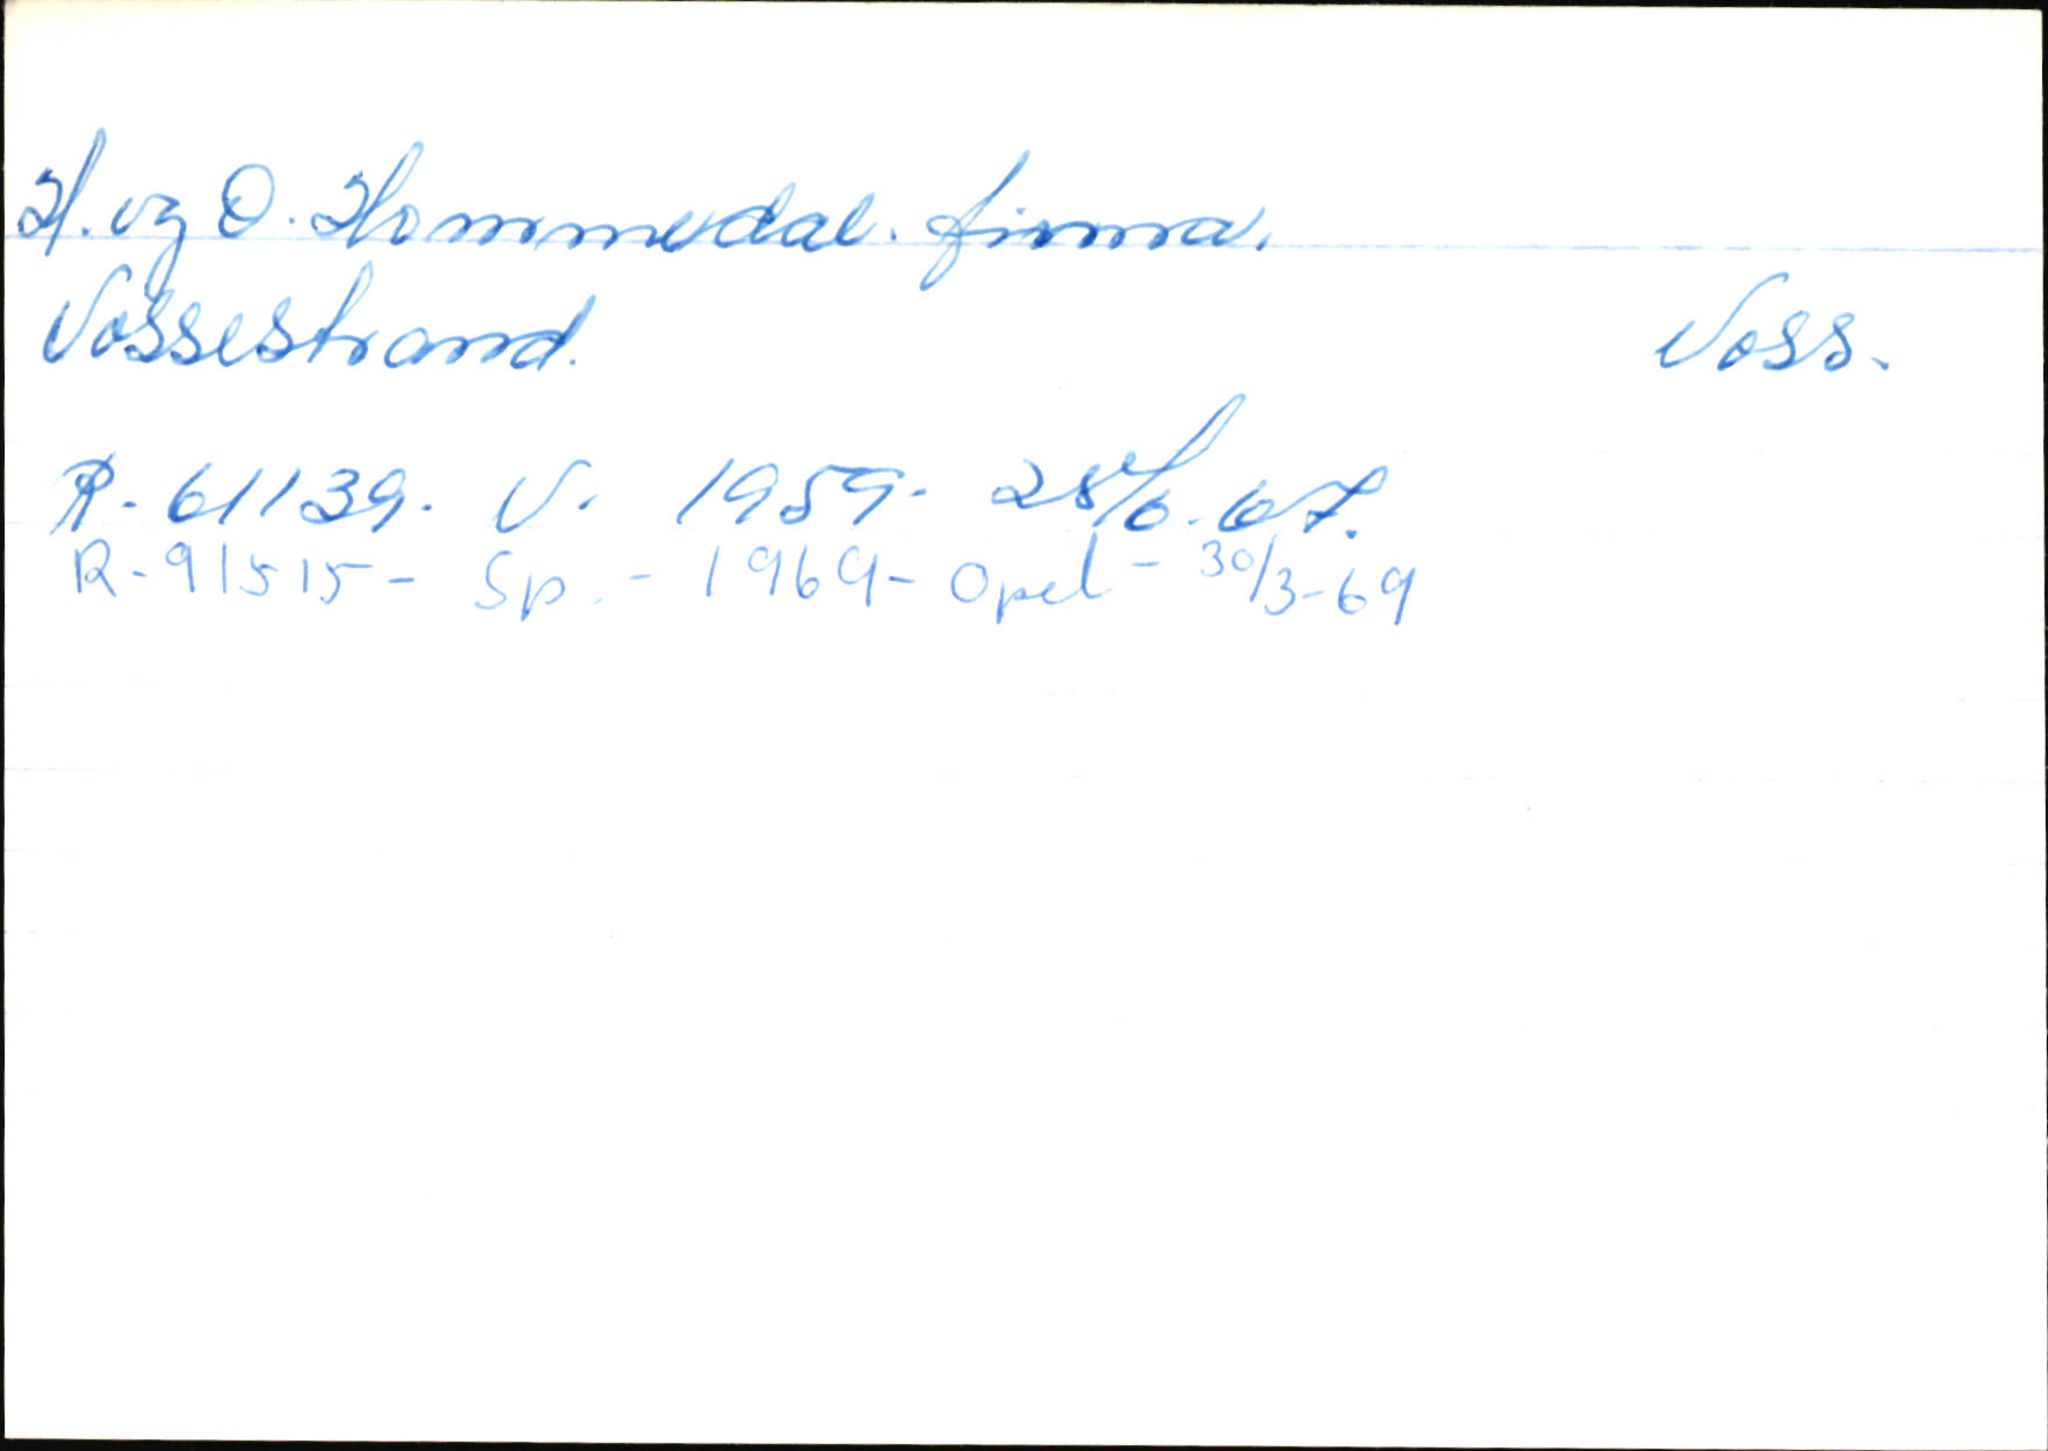 H. og O. Hommedal. firma.
Vossestrand. Voss.
R. 61139. V. 1959. 28/6. 67.
R-91515- Sp. - 1969- Opel - 30/3-69